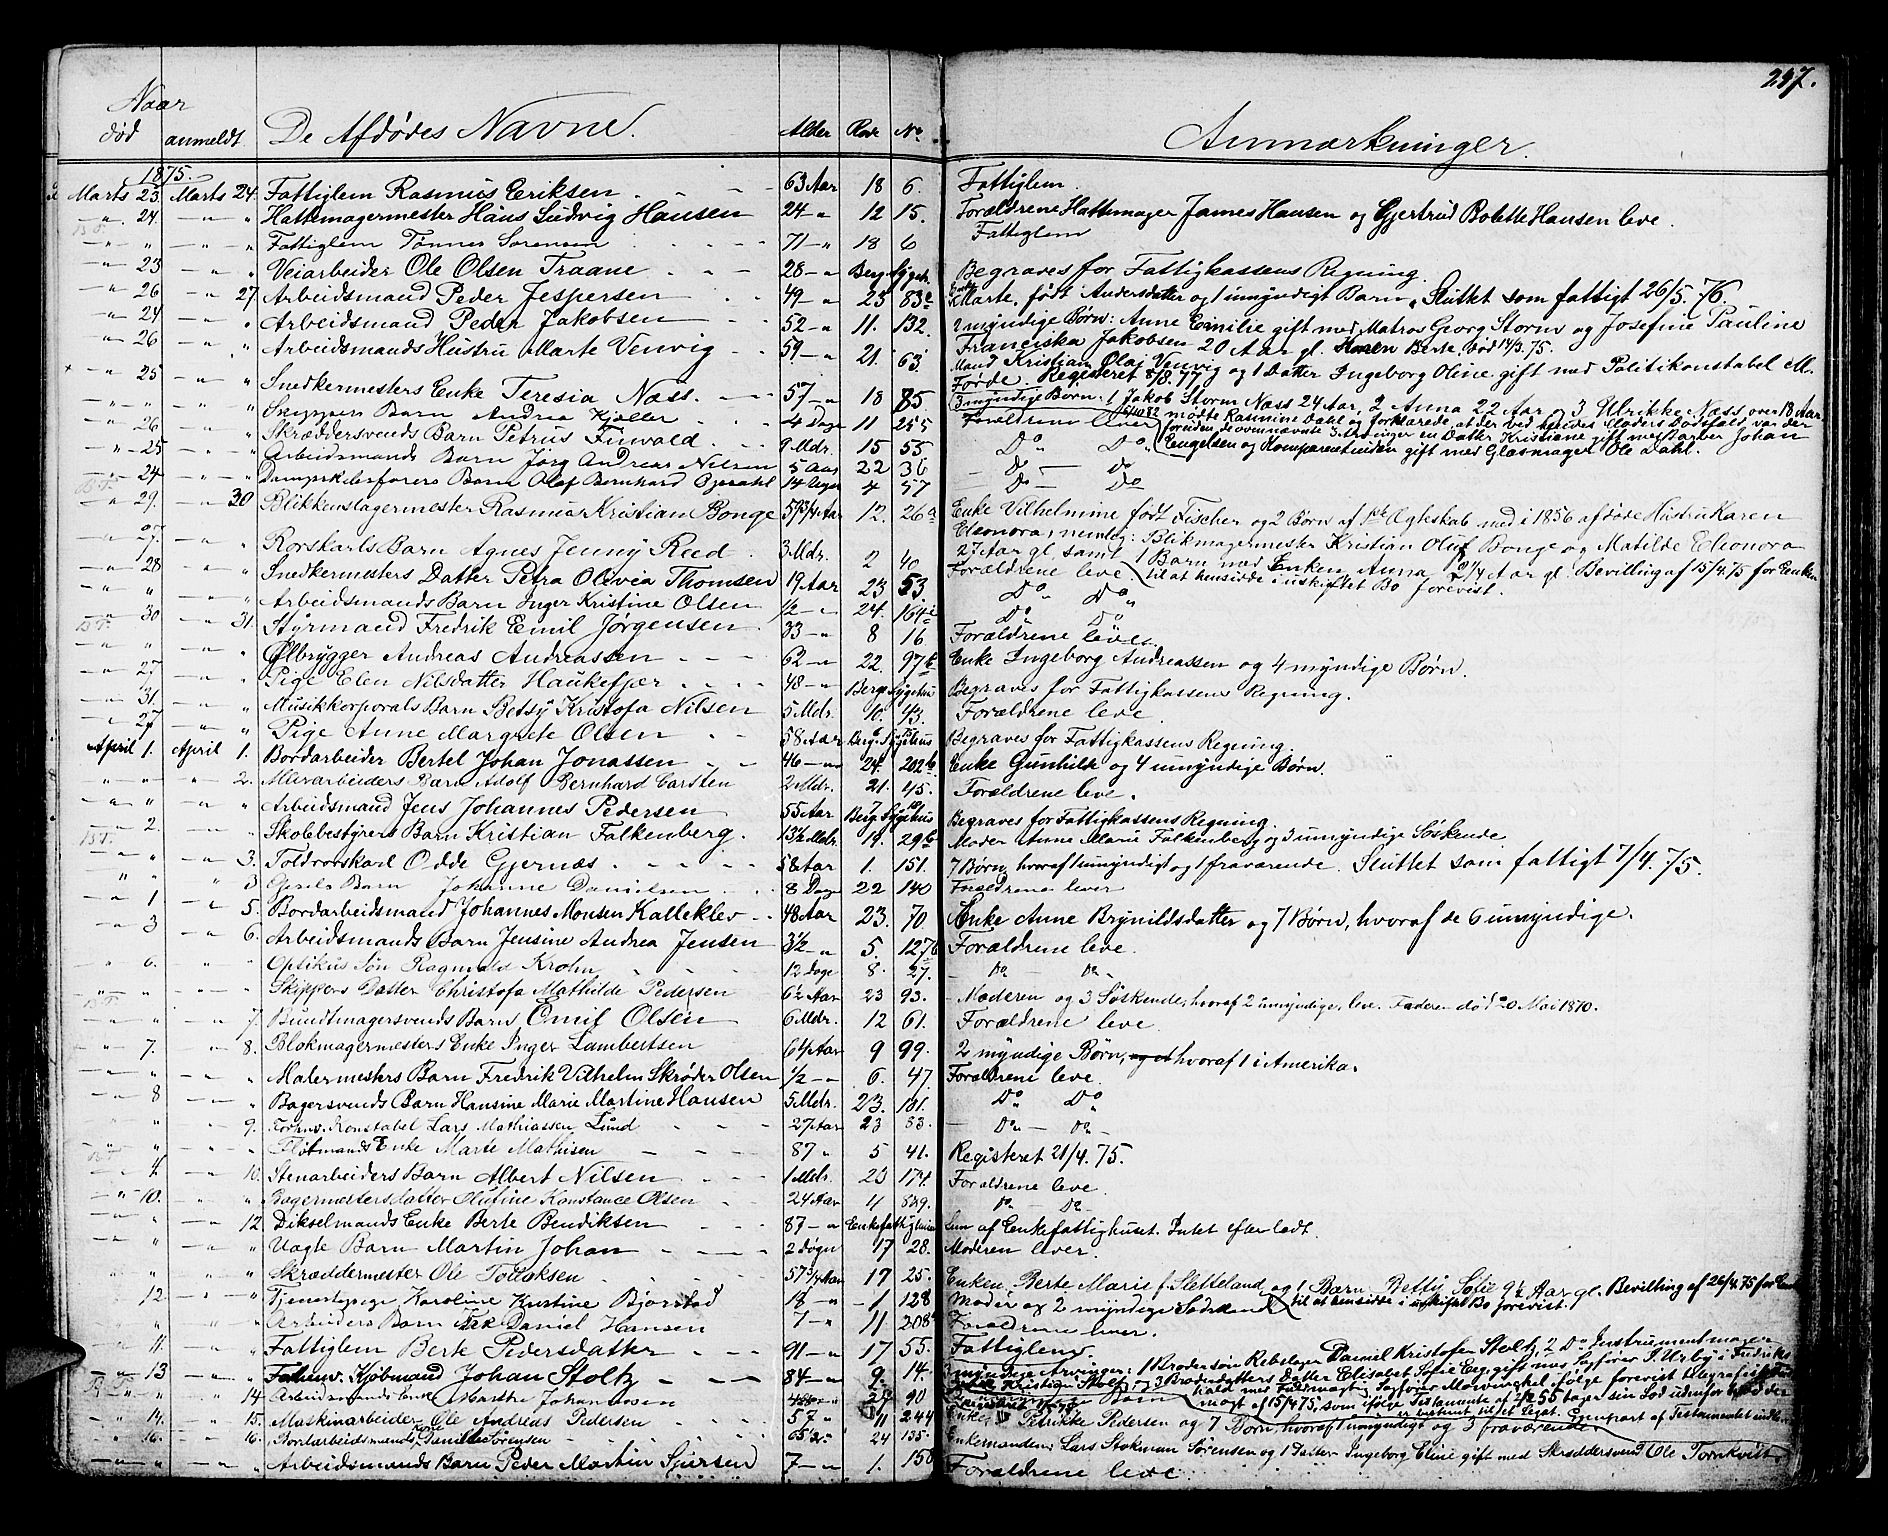 247.
Naar
død anmeldt De Afdødes Navne. Alder Rode No Anmærkninger.
1875.
Marts 23. Marts 24. Fattiglem Rasmus Eriksen 63 Aar 18 6. Fattiglem.
24. Hattemagermester Hans Ludvig Hansen 24 12 15. Forældrene Hattemager James Hansen og Gjertrud Bolette Hansen leve.
Fattiglem Tønnes Sørensen 71 18 6 Fattiglem
23 Veiarbeider Ole Olsen Traane 28 Berg. Sygeh. Begraves for Fattigkassens Regning.
26 27. Arbeidsmand Peder Jespersen 49 23 83 Enke Marte, født Andersdatter og 1 umyndigt Barn. Sluttet som fattigt 26/5.76.
24 Arbeidsmand Peder Jakobsen 52 11. 132. 2 myndige Børn: Anne Emilie gift med Matros Georg Storm og Josefine Pauline
Franciska Jakobsen 20 Aar gl. Karen Berte, død 14/3.75.
26 Arbeidsmands Hustru Marte Venvig 59 21. 63. Mand Kristian Olai Venvig og 1 Datter Ingeborg Oline gift med Politikonstabel M.
Førde. Registeret 8/8.77
25 Snedkermesters Enke Teresia Næss. 57 18 85 3 myndige Børn: 1 Jakob Storm Næss 24 Aar, 2 Anna 22 Aar og 3 Ulrikke Næss, over 18 Aar.
Skippers Barn Andrea Kjøller 4 Dage 11 255 Forældrene lever
mødte Rasmine Dahl og forklarede, at der ved hendes Moders Dødsfald var der
foruden de ovennævnte 3 Arvinger en Datter Kristiane gift med Farver Johan
Engelsen og Komparentinden gift med Glasmager Ole Dahl.
26 Skræddersvends Barn Petrus Finvald 9 Mdr. 15 55 Do Do
25 Arbeidsmands Barn Jørg Andreas Nilsen 5 Aar 22 36 Do Do
24 Dampskibsførers Barn Olaf Bernhard Bjørdahl 14 Uger 4 57 Do Do
29. 30 Blikkenslagermester Rasmus Kristian Bonge 59 3/4 Aar 12. 26a Enke Vilhelmine født Fischer og 2 Børn af 1ste Ægteskab med i 1856 afdøde Hustru Karen
Eleonora, nemlig: Blikmagermester Kristian Oluf Bonge og Matilde Eleonora
27 Aar gl. samt 1 Barn med Enken, Anna 9 1/4 Aar gl. Bevilling af 15/4.75 for Enken
til at hensidde i uskiftet Bo forevist.
27. Rorskarls Barn Agnes Jenny Reed 3 Mdr. 2 40 Forældrene leve.
28 Snedkermesters Datter Petra Olivia Thomsen 19 Aar 23 53. Do Do
Arbeidsmands Barn Inger Kristine Olsen 1/2 24. 164 Do Do
30 31. Styrmand Fredrik Emil Jørgensen 33 8 16 Forældrene leve.
Ølbrygger Andreas Andreassen 62 22. 97b Enke Ingeborg Andreassen og 4 myndige Børn.
27 Pige Elen Nilsdatter Haukefjær 48 Berg. Sygehus Begraves for Fattigkassens Regning.
31. Musikkorporals Barn Betsy Kristofa Nilsen 5 Mdr. 10. 43. Forældrene leve
27 Pige Anne Margrete Olsen 58 Aar Berg. Sygehus Begraves for Fattigkassens Regning.
April 1. April 1. Bordarbeider Bertel Johan Jonassen 46 24. 202b Enke Gunhilde og 4 umyndige Børn.
2. Murarbeiders Barn Adolf Bernhard Carsten 2 Mdr. 21. 45. Forældrene leve.
Arbeidsmand Jens Johannes Pedersen 55 Aar Berg. Sygehus Begraves for Fattigkassens Regning.
2. Skolebestyrers Barn Kristian Falkenberg. 13 1/2 Mdr. 19. 29b Moder Anne Marie Falkenberg og 3 umyndige Søskende.
3. Toldrorskarl Odde Gjernæs 58 Aar 1. 151. 7 Børn, hvoraf 1 umyndigt og 1 fraværende. Sluttet som fattigt 7/4.75.
3 Barn Johanne Danielsen 8 Dage 22 140 Forældrene lever
1 5. Bordarbeidsmand Johannes Monsen Kalleklev 48 Aar 23. 70. Enke Anne Brynildsdatter og 7 Børn, hvoraf de 6 umyndige.
3 6. Arbeidsmands Barn Jensine Andrea Jensen 3 1/2 5. 127b Forældrene leve.
6. Optikus Søn Ragnvald Krohn 12 Dage 8. 27. Do Do
Skippers Datter Christofa Mathilde Pedersen 6 1/2 Aar 23 93. Moderen og 3 Søskende, hvoraf 2 umyndige, leve. Faderen død 20 Mai 1870.
7. Bundtmagersvends Barn Emil Olsen 6 Mdr. 12 61. Forældrene leve.
7. 8. Blokmagermesters Enke Inger Lambertsen 64 Aar 9 99. 2 myndige Børn, hvoraf 1 i Amerika.
Malermesters Barn Fredrik Vilhelm Skrøder Olsen 1/2 6. 47 Forældrene leve.
8 Bagersvends Barn Hansine Marie Martine Hansen 5 Mdr. 23. 101. Do Do
9. Forhv. Konstabel Lars Mathiassen Lund 27 Aar 23 83. Do Do
Fløtmands Enke Marte Mathisen 87 5 41. Registeret 21/4.75.
4 10. Stenarbeiders Barn Albert Nilsen 1 Mdr. 23 174. Forældrene leve
10. Bagermesters datter Olufine Konstance Olsen 24 Aar 4 839. Do Do
12 Dikselmands Enke Berte Bendiksen 87 Enkefattighuset Lem af Enkefattighuset. Intet efterladt.
Vagts Barn Martin Johan 2 Døgn 17 28. Moderen lever.
Skræddermester Ole Tollaksen 57 3/4 Aar 17 25. Enken, Berte Marie f. Sletteland og 1 Barn, Betty Sofie 9 1/2 Aar gl. Bevilling af 26/4.75 for Enken
til at hensidde i uskiftet Bo forevist.
12. Tjenestepige Karoline Kristine Bjørstad 18 1 128 Moder og 2 myndige Sødsken
Arbeiders Barn Isak Daniel Hansen 7 11 208 Forældrene lever.
11. Fattiglem Berte Pedersdatter 91 17 55. Fattiglem.
13 Forhenv. Kjøbmand Johan Stoltz 84 9. 14. myndige Arvinger: 1 Brodersøn Rebslager Daniel Kristofer Stoltz, 2 Do Instrumentmager
Kristian Stoltz, og 3 Broderdatters Datter Elisabet Sofie gift med Sagfører
14 Arbeidsmands Enke Marthe Johannesen 90
14. 15. Maskinarbeider Ole Andreas Pedersen 57 11 244 Enke Petrikke Pedersen og 7 Børn, hvoraf 1 umyndigt og 3 fraværende.
16. 16. Bordarbeidsmands Danielle Sørensen 65 24 135. Enkemanden Lars Stokman Sørensen og 1 Datter Ingeborg Eline gift med Skræddersvend Ole Tornkvist
Arbeidsmands Barn Peder Martin Sjursen 7 1. 150 Forældrene leve